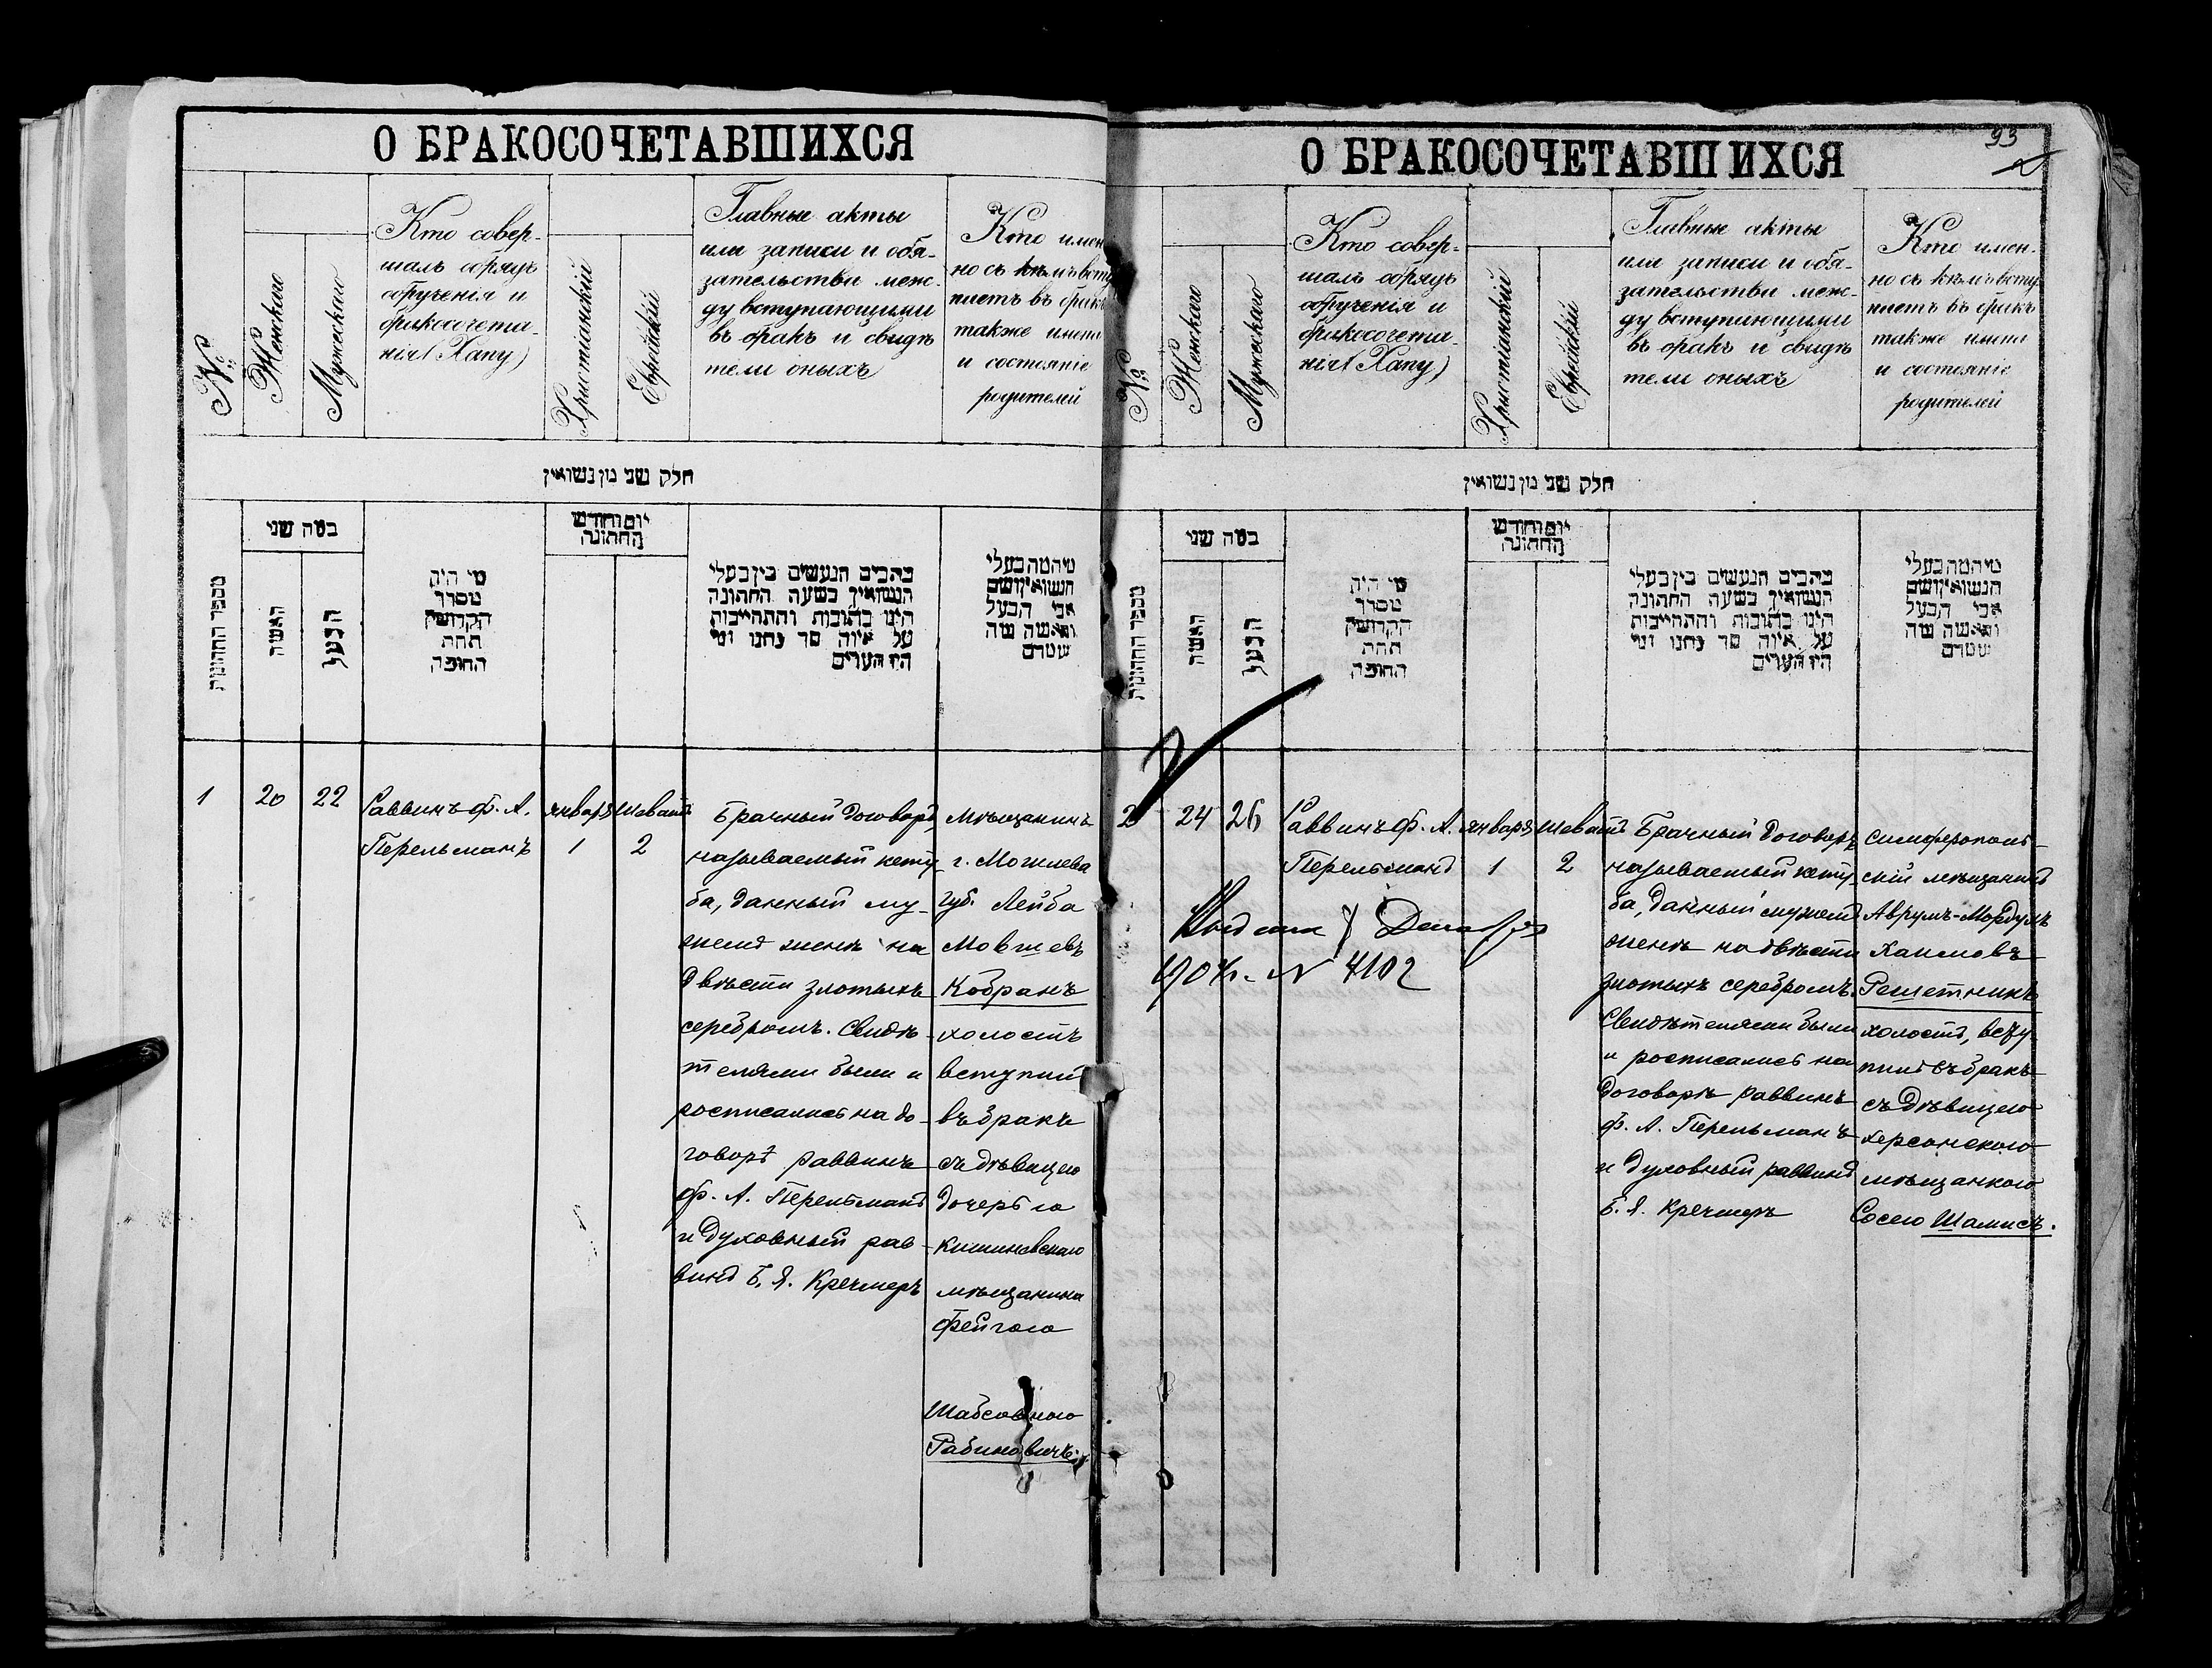 О БРАКОСОЧЕТАВШИХСЯ
№
Женскаго
Мужескаго
Кто совер-
шалъ обрядъ
обрученія и
бракосочета-
нія (Хапу)
Христіанскій
Еврейскій
Главные акты
или записи и обя-
зательства меж-
ду вступающими
въ бракъ и свидѣ
тели оныхъ
Кто имен
но съ кѣмъ всту
паетъ въ бракъ
также имена
и состояніе
родителей
חלק שני מן נשואין
מספר החתונות
כמה שני
האשה
הבעל
מי היה
מסדר
הקדושין
תחת
החופה
יום וחודש
החתונה
כתבים הנעשים בין בעלי
הנשואין בשעה החתונה
היינו כתובות והתחייבות
על איזה סך נתנו ומי
היו העדים
מי המה בעלי
הנשואין ושם
אבי הבעל
והאשה ומה
שמדם
1
20
22
Раввинъ Ф. А.
Перельманъ
Января
1
Шеватъ
2
Брачный договоръ,
называемый кету-
ба, данный му-
жемъ женѣ на
двѣсти злотыхъ
серебромъ. Свидѣ-
телями были и
росписались на до-
говорѣ раввинъ
Ф. А. Перельманъ
и духовный рав-
винъ Б. Я. Кречмеръ
Мѣщанинъ
г. Могилева
губ. Лейба
Мовшевъ
Кобранъ
холостъ
вступилъ
въ бракъ
съ дѣвицею
дочерью
кишиневскаго
мѣщанина
Фейгою
Шабсовною
Рабиновичъ
О БРАКОСОЧЕТАВШИХСЯ
93
№
Женскаго
Мужескаго
Кто совер-
шалъ обрядъ
обрученія и
бракосочета-
нія (Хапу)
Христіанскій
Еврейскій
Главные акты
или записи и обя-
зательства меж-
ду вступающими
въ бракъ и свидѣ
тели оныхъ
Кто имен-
но съ кѣмъ всту
паетъ въ бракъ
также имена
и состояніе
родителей
חלק שני מן נשואין
מספר החתונות
כמה שני
האשה
הבעל
מי היה
מסדר
הקדושין
תחת
החופה
יום וחודש
החתונה
כתבים הנעשים בין בעלי
הנשואין בשעה החתונה
היינו כתובות והתחייבות
על איזה סך נתנו ומי
היו העדים
מי המה בעלי
הנשואין ושם
אבי הבעל
והאשה ומה
שמדם
2
24
26
Раввинъ Ф. А.
Перельманъ
Января
1
Шеватъ
2
Декабря
1904г. N 4102
Брачный договоръ
называемый кету-
ба, данный мужемъ
женѣ на двѣсти
злотыхъ серебромъ.
Свидѣтелями были
и росписались на
договорѣ раввинъ
Ф. А. Перельманъ
и духовный раввинъ
Б. Я. Кречмеръ
Симферополь-
скій мѣщанинъ
Аврумъ-Мордухъ
Хаимовъ
Решетникъ
холостъ, всту-
пилъ въ бракъ
съ дѣвицею
херсонскою
мѣщанкою
Сосею Шамисъ.